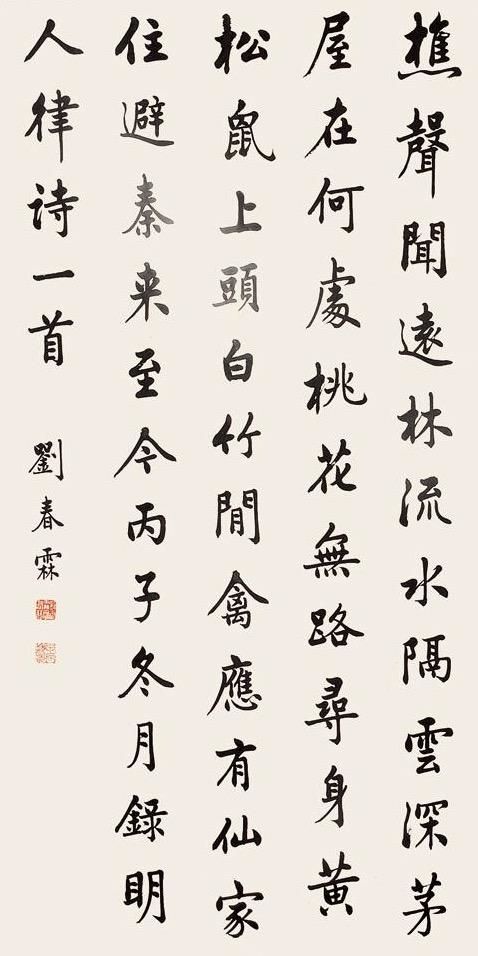 樵聲聞遠林流水隔雲深茅
屋在何處桃花無路尋身黃
松鼠上頭白竹閒禽應有仙家
住避秦来至今丙子冬月錄明
人律诗一首
劉春霖